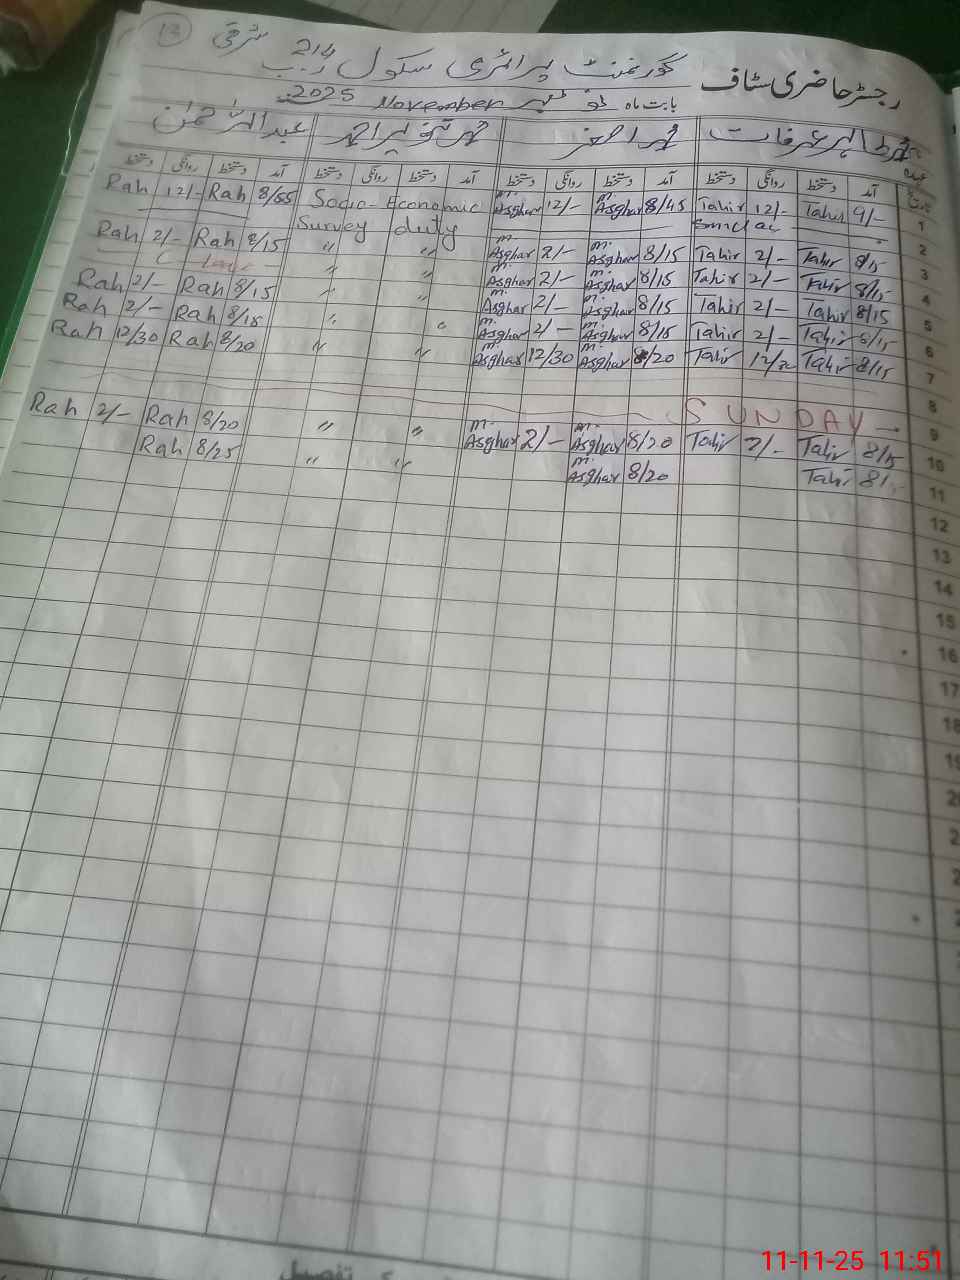 13
گورنمنٹ پرائمری سکول 214 ر ب شرقی
رجسٹر حاضری سٹاف
بابت ماہ نومبر November 2025
محمد طاہر عرفات محمد اصغر محمد تنویر احمد عبدالرحمٰن
عہدہ
تاریخ آمد دستخط روانگی دستخط آمد دستخط روانگی دستخط آمد دستخط روانگی دستخط آمد دستخط روانگی دستخط
Rah 12/- Rah 8/55 Socio-Economic M. Asghar 12/- M. Asghar 8/45 Tahir 12/- Tahir 9/- 1
Survey duty Sunday 2
Rah 2/- Rah 8/15 " " M. Asghar 2/- M. Asghar 8/15 Tahir 2/- Tahir 8/15 3
Leave " " M. Asghar 2/- M. Asghar 8/15 Tahir 2/- Tahir 8/15 4
Rah 2/- Rah 8/15 " " M. Asghar 2/- M. Asghar 8/15 Tahir 2/- Tahir 8/15 5
Rah 2/- Rah 8/15 " " M. Asghar 2/- M. Asghar 8/15 Tahir 2/- Tahir 8/15 6
Rah 12/30 Rah 8/20 " " M. Asghar 12/30 M. Asghar 8/20 Tahir Tahir 8/15 7
8
SUNDAY 9
Rah 2/- Rah 8/20 " " M. Asghar 2/- M. Asghar 8/20 Tahir 2/- Tahir 8/15 10
Rah 8/25 " " M. Asghar 8/20 Tahir 11
12
13
14
15
16
17
18
19
20
تفصیل
11-11-25 11:51